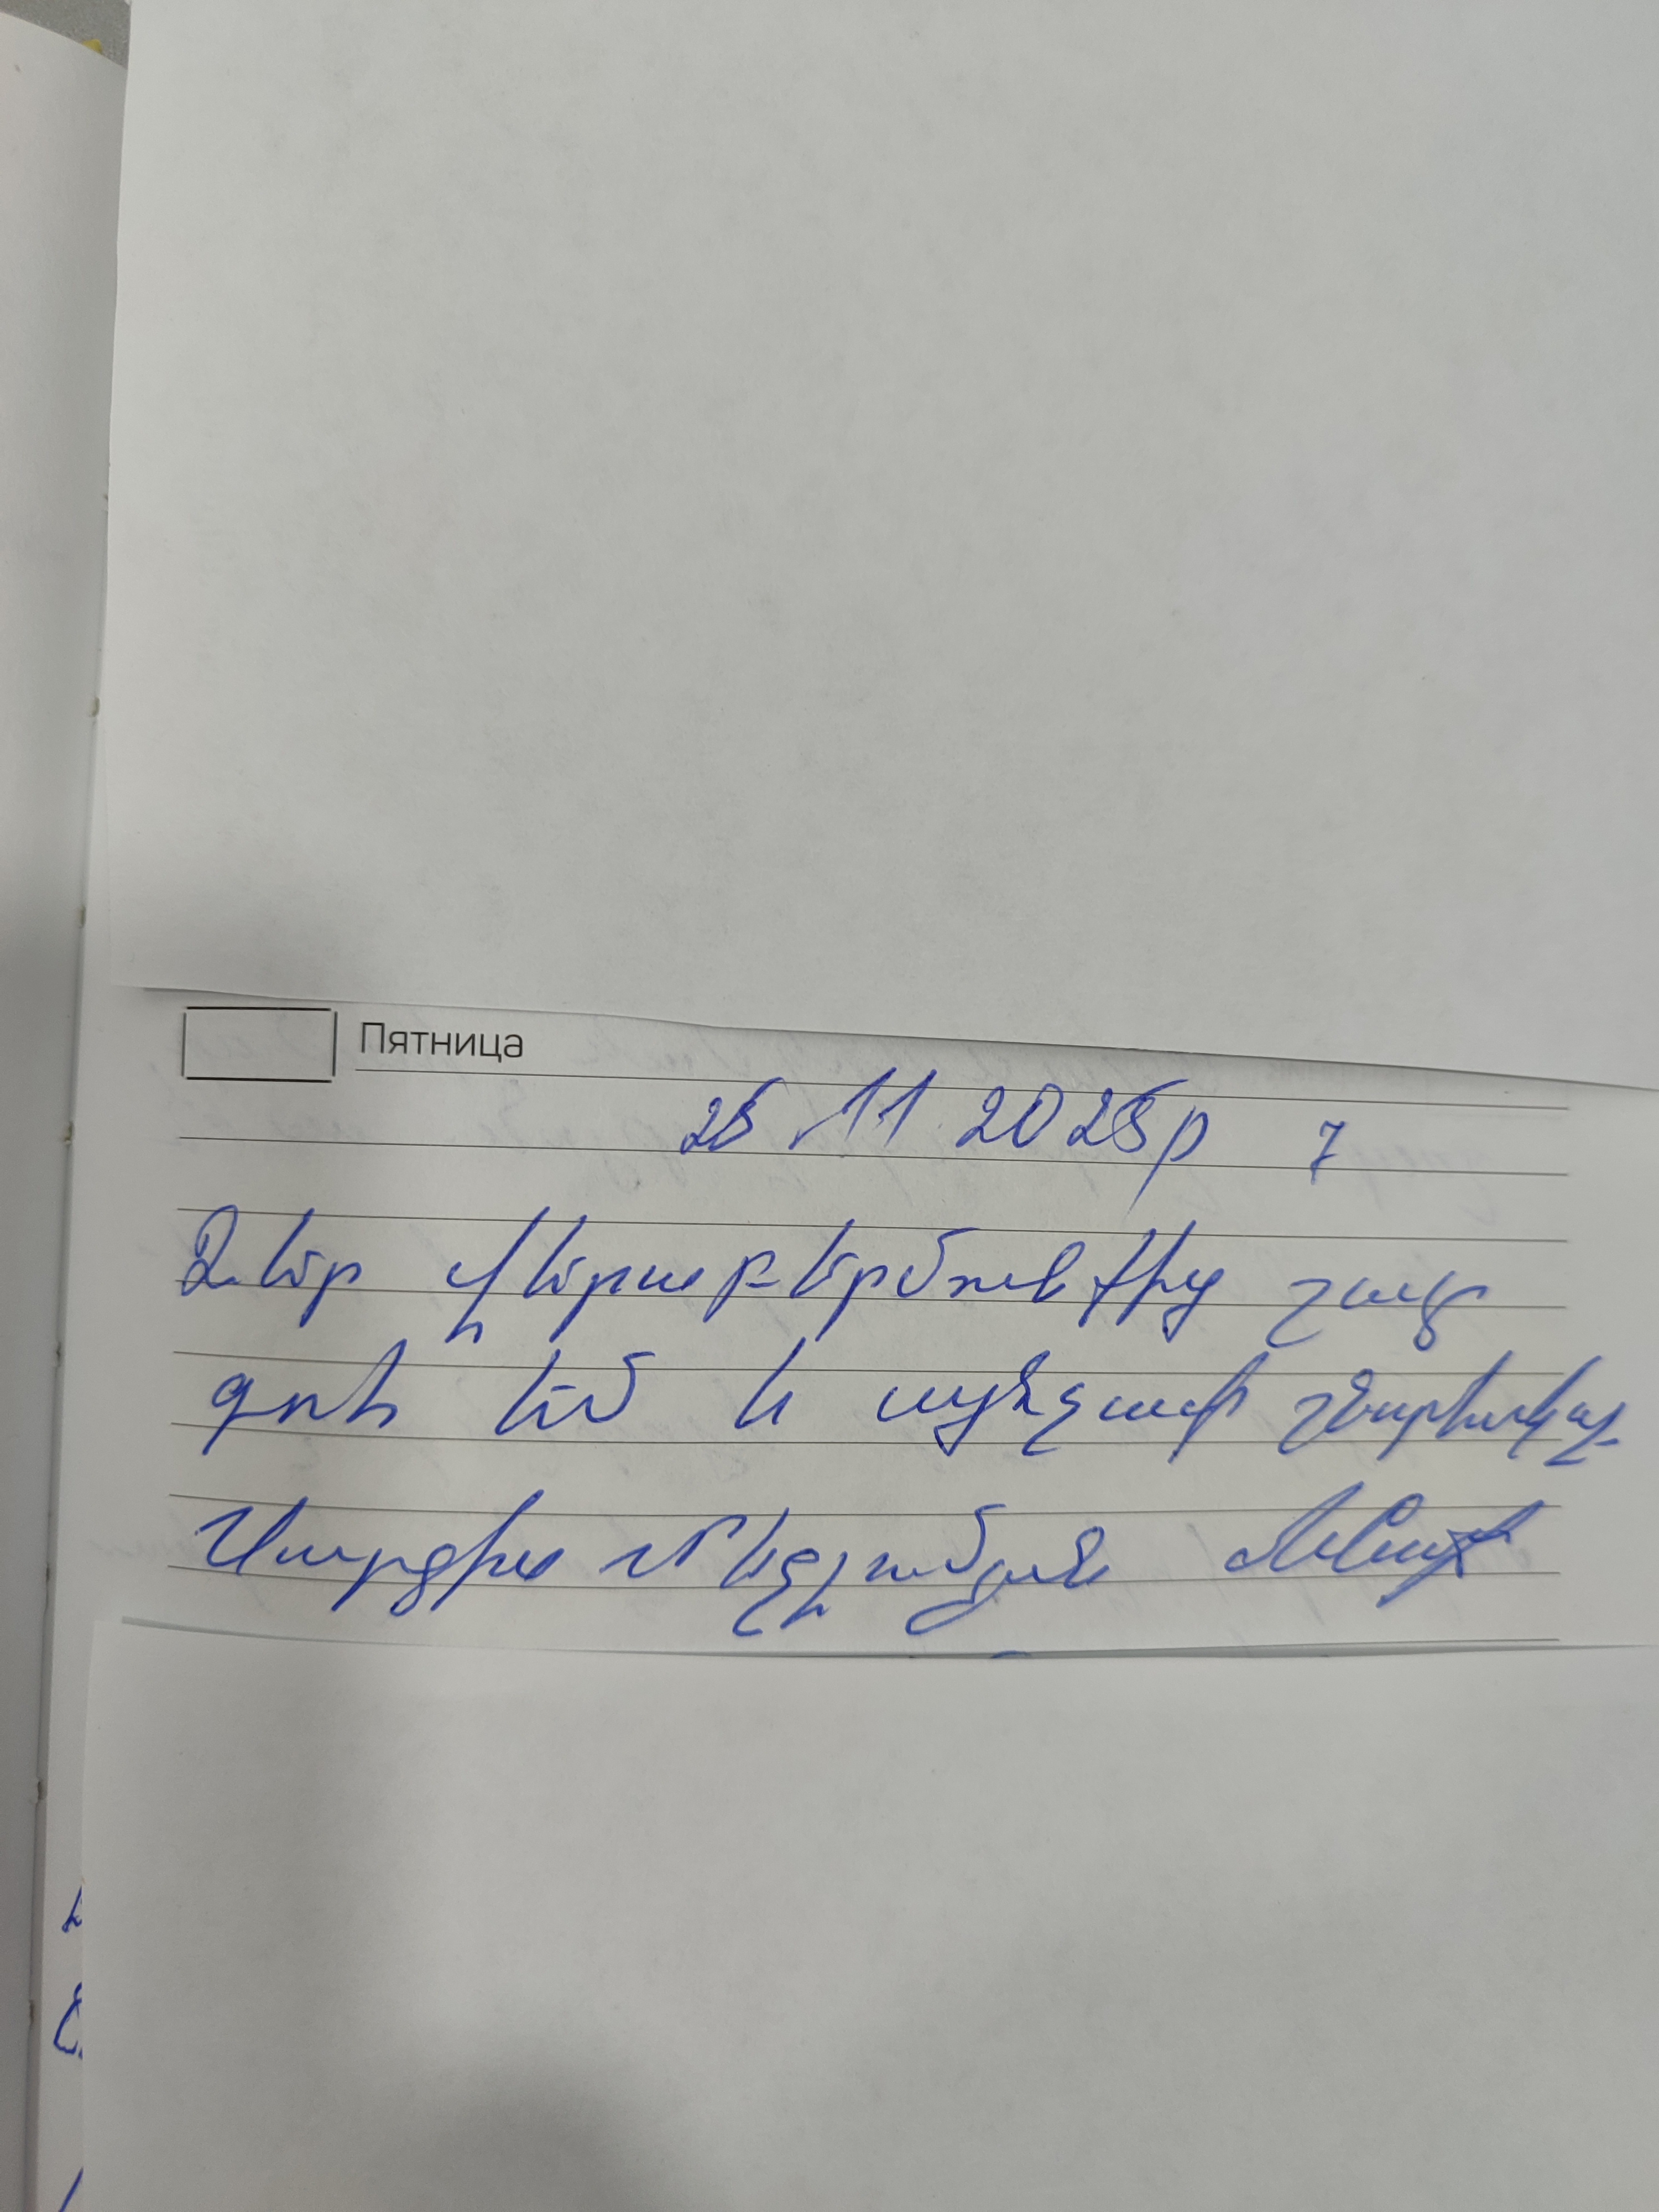 Пятница
25.11 2025թ 7
Ձեր վերաբերմունքից շատ
գոհ եմ և այնչափ շնորհակալ
Սարգիս Մելքումյան